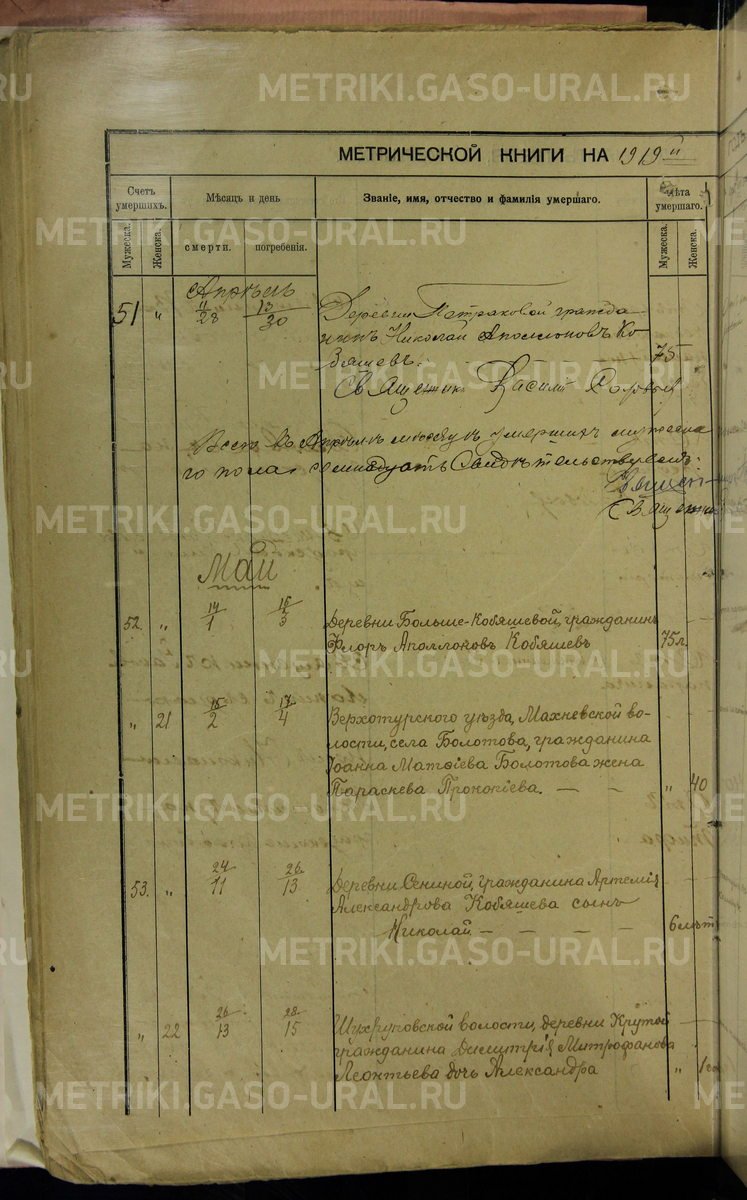 METRIKI.GASO-URAL.RU
МЕТРИЧЕСКОЙ КНИГИ НА 1919 й
Счетъ умершихъ.
Мѣсяцъ и день
Званіе, имя, отчество и фамилія умершаго.
Лѣта умершаго.
Мужеска.
Женска.
смерти.
погребенія.
Мужеска.
Женска.
Апрѣль
51 " 11/28 13/30 Деревни Петраковой гражда-
нинъ Николай Аполлоновъ Ко-
бяшевъ. 75
Священник Василий
Всего въ Апрѣлѣ мѣсяцѣ умершихъ мужеска-
го пола семнадцать Свидѣтельствуемъ:
Священник
Май
52. " 14/1 16/3 Деревни Больше-Кобяшевой, гражданинъ
Флоръ Аполлоновъ Кобяшевъ 75 л.
" 21 15/2 17/4 Верхотурского уѣзда, Махневской во-
лости, села Болотова, гражданина
Іоанна Матѳіева Болотова жена
Параскева Прокопіева. — — " 40
53. " 24/11 26/13 Деревни Сениной, гражданина Артемія
Александрова Кобяшева сынъ
Николай — — — — 6 лѣт
" 22 26/13 28/15 Шухруповской волости, деревни Крутой
гражданина Димитрія Митрофанова
Леонтьева дочь Александра " 1 го